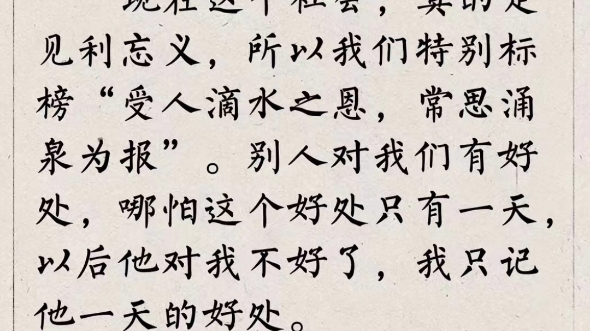 现在这个社会，真的是
见利忘义，所以我们特别标
榜“受人滴水之恩，常思涌
泉为报”。别人对我们有好
处，哪怕这个好处只有一天，
以后他对我不好了，我只记
他一天的好处。